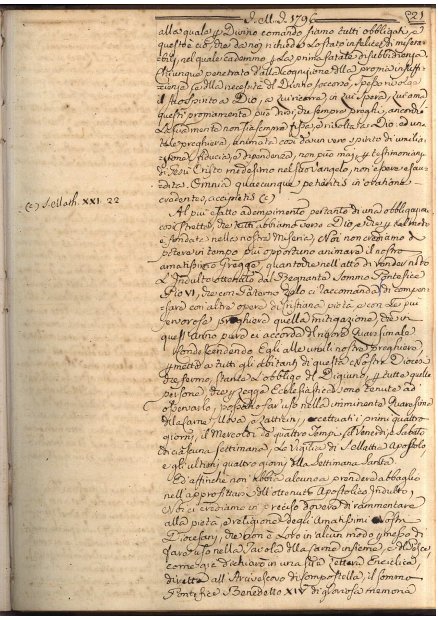 J. M. J. 1796
221
alla quale p Divino comando siamo tutti obbligati, e
questo è ciò, che da noi richiede lo stato infelice, di misera-
bili, nel quale cademmo p la prima fatale disubbidienza.
Chiunque penetrato dalla cognizione della propria insuffi-
cienza, e della necessità del Divino soccorso, spesso rivolge
il suo spirito a Dio, a cui ricorre, in cui spera, cui ama
questi propriamente può dirsi, che sempre preghi, ancorchè
la sua mente non sia sempre fissa, e rivolta a Dio: ed un
tale preghiera, animata così da un vero spirito di umilia-
zione, fiducia, e dipendenza, non può mai, p testimonianza
di Gesù Cristo medesimo nel suo Vangelo, non essere esau-
dita: Omnia quaecunque petieritis in oratione
credentes, accipietis (c)
(c) S. Matth. XXI. 22
Al più esatto adempimento pertanto di una obbligazione
così stretta, che tutti abbiamo verso Dio, e che p del moto
è fondata nelle nostre Miserie, Noi non crediamo di
potere in tempo più opportuno animare il nostro
amatissimo Gregge, quanto che nell'atto di render noto
L'Indulto ottenuto dal Regnante Sommo Pontefice
Pio VI, che con Paterno zelo ci raccomanda di compen-
sare con altre opere di Cristiana pietà, e con le più
fervorose preghiere quella mitigazione, che in
quest'Anno pure ci accorda al rigore Quaresimale
Condescendendo Egli alle umili nostre preghiere,
permette a tutti gli abitanti di questa Nostra Diocesi
che fermo stante l'obbligo del Digiuno, p tutte quelle
persone, che p Legge Ecclesiastica sono tenute ad
osservarlo, possano far uso nella imminente Quaresima
della carne, Uova, e latticini, eccettuati i primi quattro
giorni, il Mercoldì de quattro Tempi, il Venerdì, e Sabato
di ciascuna settimana, la Vigilia di S. Mattia Apostolo
e gli ultimi quattro giorni della Settimana Santa.
Ed affinchè non v'abbia alcuno a prendere abbaglio
nell'approfittare dell'ottenuto Apostolico Indulto,
Noi ci crediamo in preciso dovere di rammentare
alla pietà, e religione degli Amatissimi Nostri
Diocesani, che non è Loro in alcun modo permesso di
far uso nella Tavola della carne insieme, e del Pesce
come que dichiarò in una sua Lettera Enciclica,
diretta all'Arcivescovo di Compostella, il sommo
Pontefice Benedetto XIV di gloriosa memoria